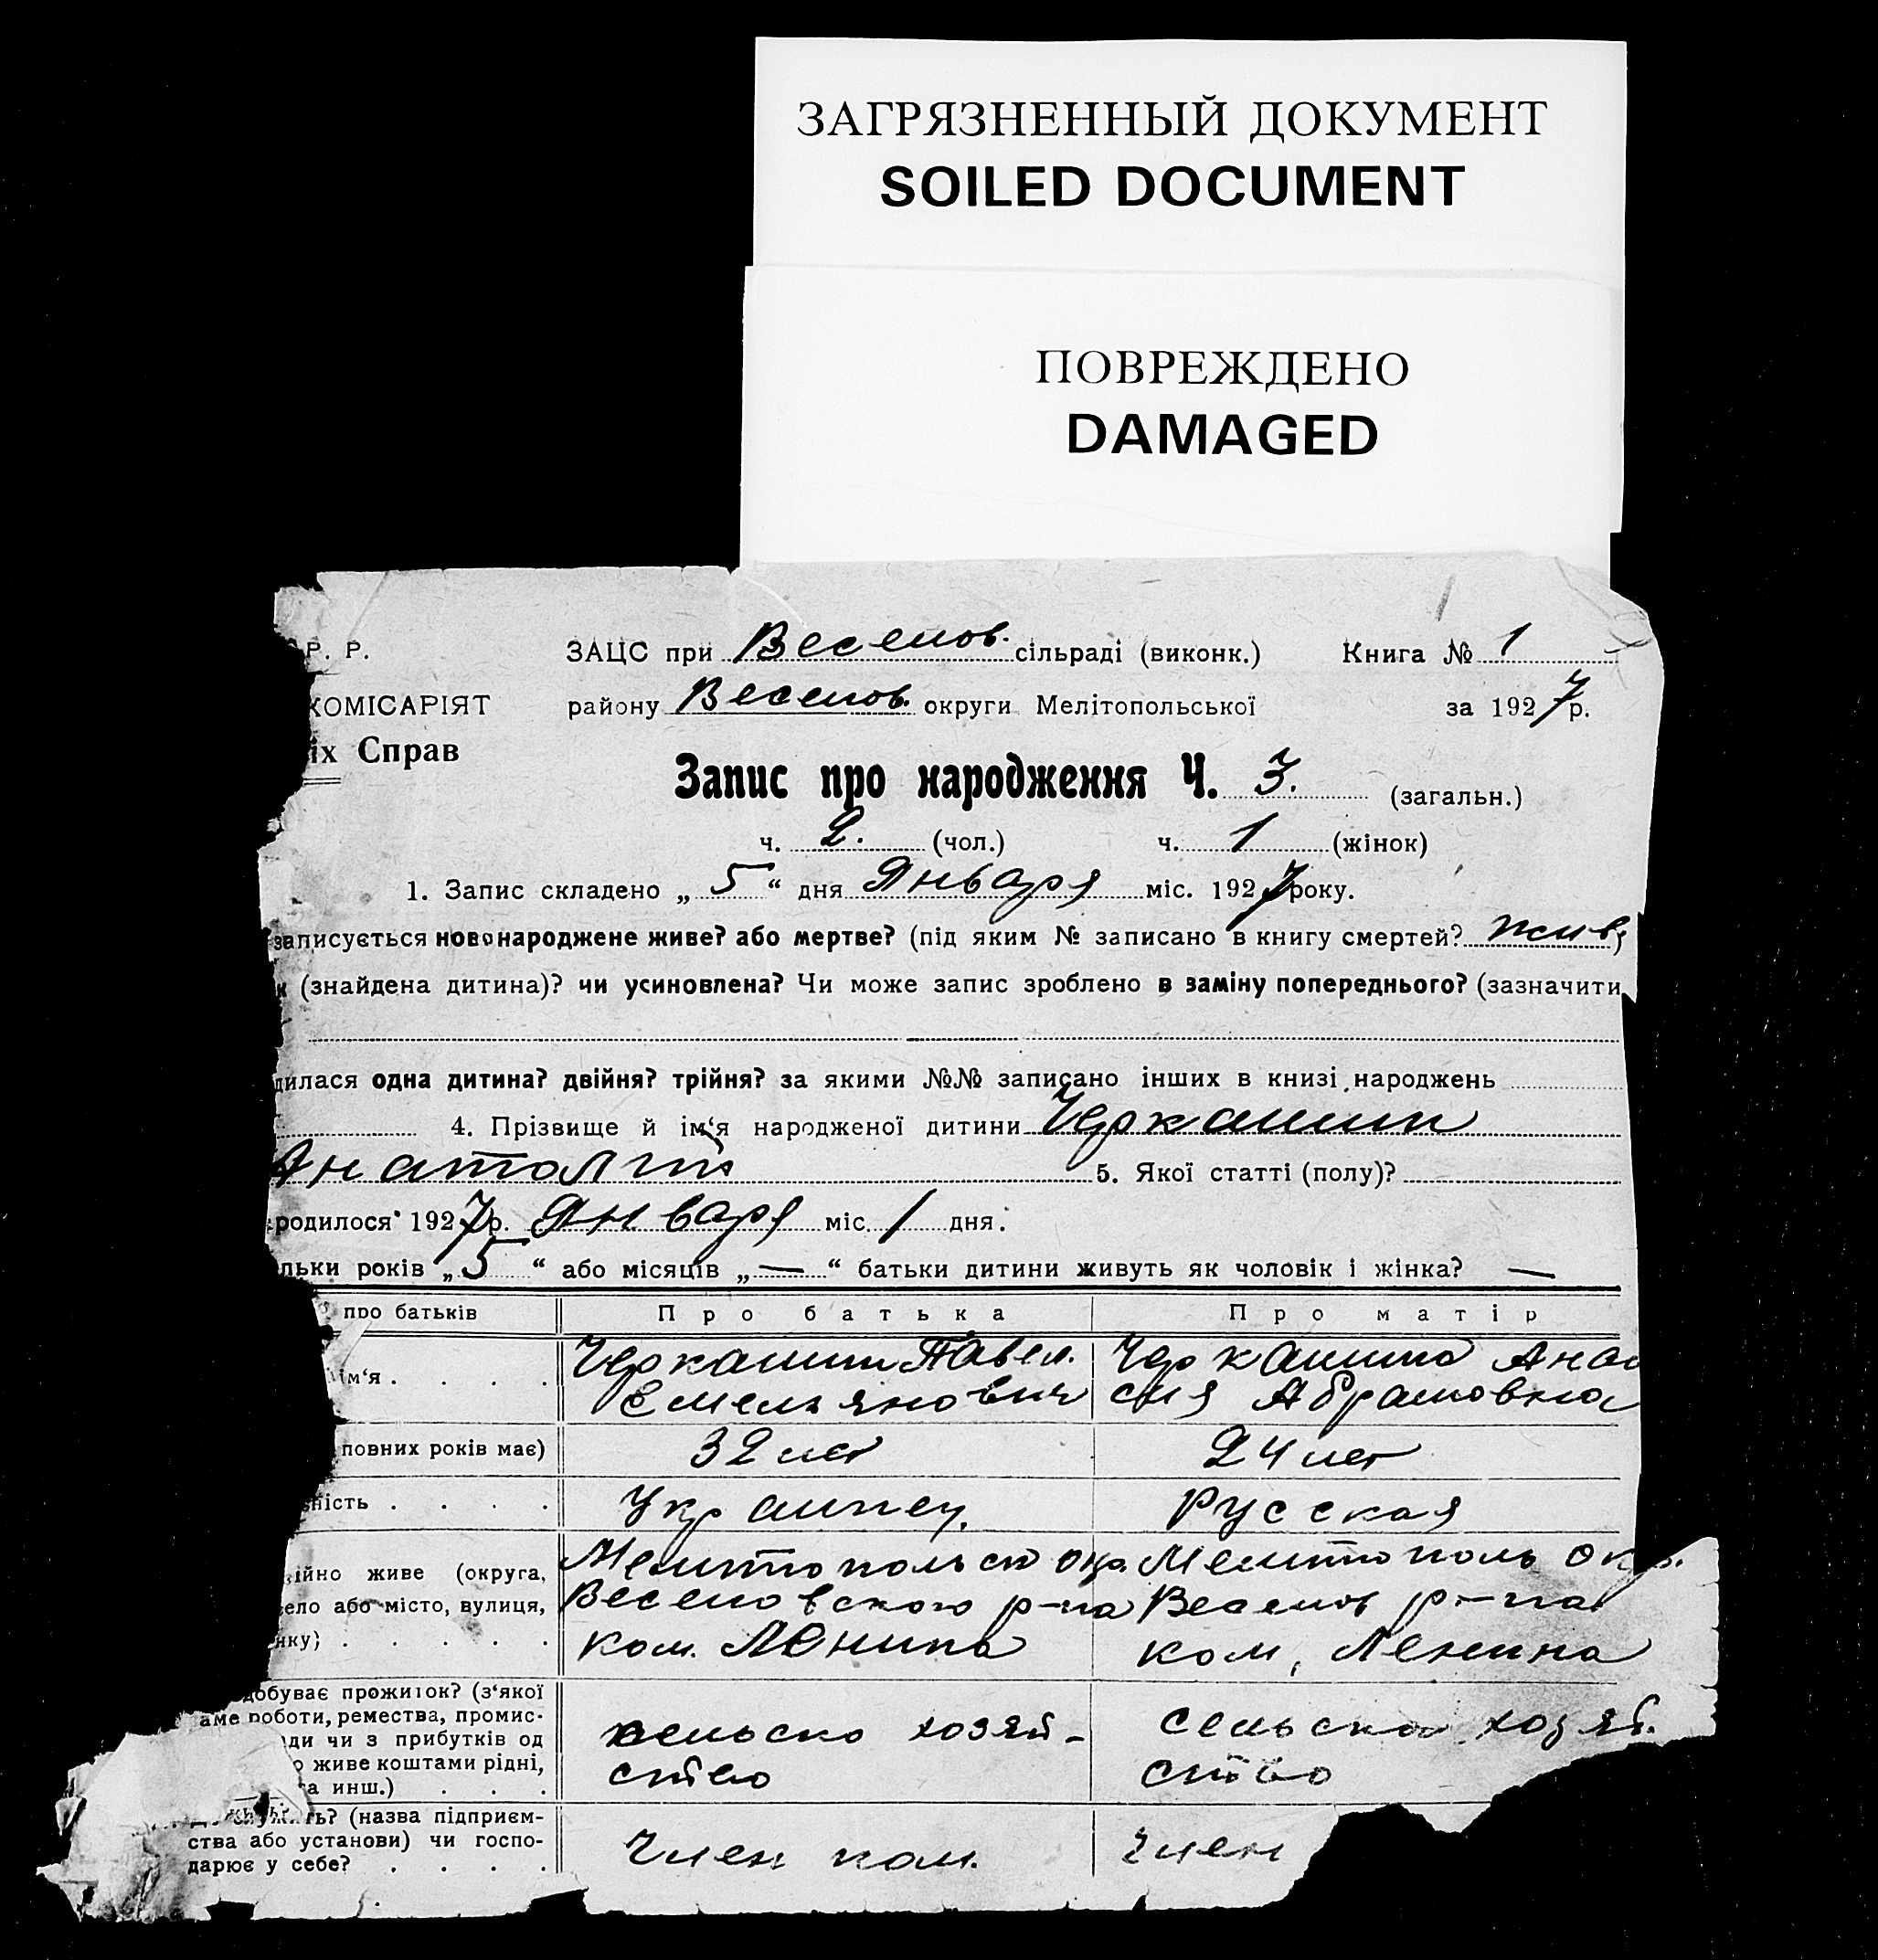 ЗАГРЯЗНЕННЫЙ ДОКУМЕНТ
SOILED DOCUMENT
ПОВРЕЖДЕНО
DAMAGED
Р. Р. ЗАЦС при Веселов. сільраді (виконк.) Книга № 1
КОМІСАРІЯТ району Веселов. округи Мелітопольської за 1927 р.
іх Справ
Запис про народження Ч. 3. (загальн.)
ч. 2. (чол.) ч. 1 (жінок)
1. Запис складено „ 5 “ дня Января міс. 1927 року.
записується новонароджене живе? або мертве? (під яким № записано в книгу смертей? жив
к (знайдена дитина)? чи усиновлена? Чи може запис зроблено в заміну попереднього? (зазначити
дилася одна дитина? двійня? трійня? за якими №№ записано інших в книзі народжень
4. Прізвище й ім‘я народженої дитини Черкашин
Анатолий 5. Якої статті (полу)?
родилося 1927 р. Января міс. 1 дня.
льки років „ 5 “ або місяців „ — “ батьки дитини живуть як чоловік і жінка? —
про батьків Про батька Про матір
Черкашин Павел. Черкашина Ана
ім‘я . . . .
Емельянович сия Абрамовна
повних років має) 32 лет 24 лет
ність . . . . Украинец. Русская
Мелитопольск окр. Мелитополь окр.
ійно живе (округа,
село або місто, вулиця, Веселовского р-на Веселов р-на
нку) . . . . . ком. Ленина ком. Ленина
добуває прожиток? (з‘якої
аме роботи, ремества, промис- сельско хозяй- сельско хозяй.
ди чи з прибутків од
о живе коштами рідні, ство ство
та инш.) . . .
служить? (назва підприєм-
ства або установи) чи госпо- Член ком. член
дарює у себе? . . . .